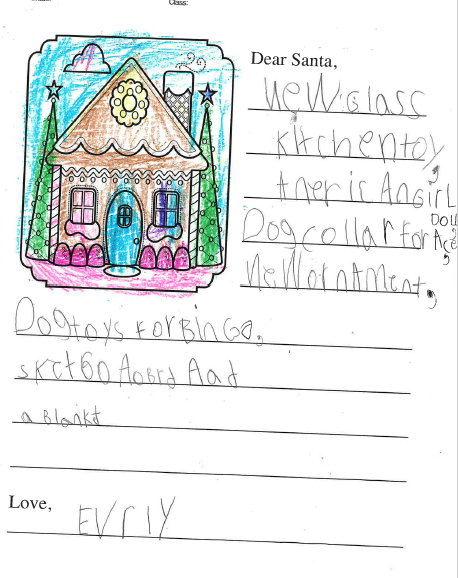 Class:
Dear Santa,
New Glass
Kitchen toy,
Americ An girL
DOll,
Dog collar For Ace,
New orntMent,
Dog toys For BinGo,
skct60 AoBrd Aad
a Blankt
Love,
EVrlY